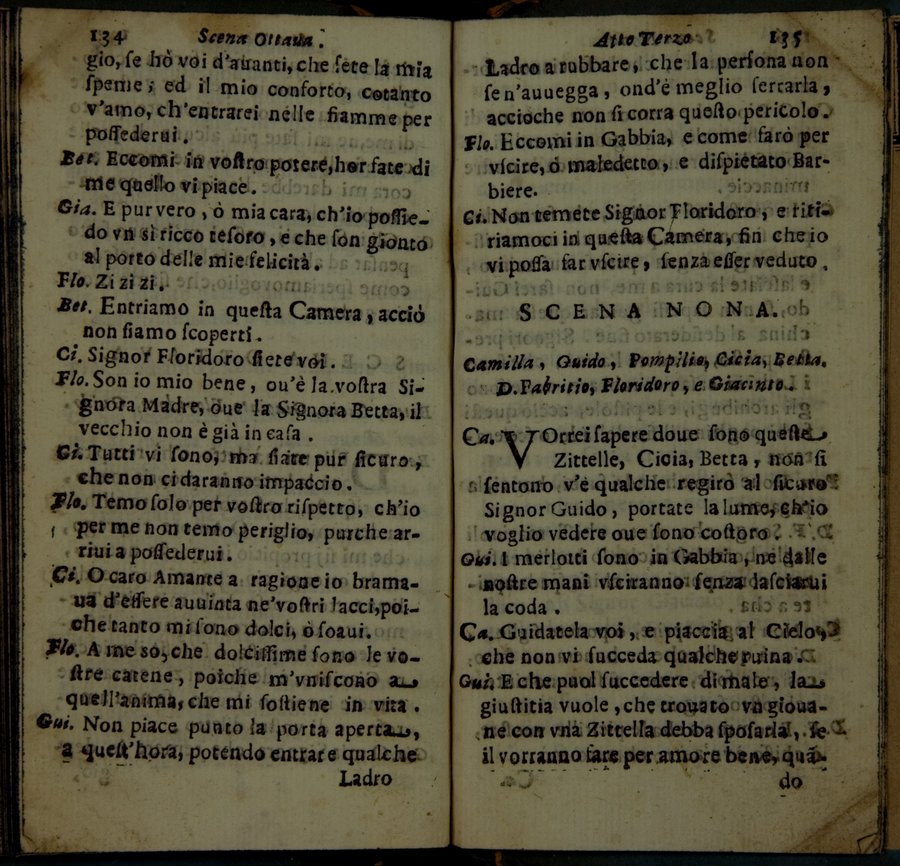 134 Scena Ottaua.
gio, ſe hò voi d'auanti, che ſete la mia
ſpeme; ed il mio conforto, cotanto
v'amo, ch'entrarei nelle fiamme per
poſſederui.
Bet. Eccomi in voſtro potere, hor fate di
me quello vi piace.
Gia. E pur vero, ò mia cara, ch'io poſſie-
do vn sì ricco teſoro, e che ſon gionto
al porto delle mie felicità.
Flo. Zi zi zi.
Bet. Entriamo in queſta Camera, acciò
non ſiamo ſcoperti.
Ci. Signor Floridoro ſiete voi.
Flo. Son io mio bene, ou'è la voſtra Si-
gnora Madre, oue la Signora Betta, il
vecchio non è già in caſa.
Ci. Tutti vi ſono, ma ſiate pur ſicuro,
che non ci daranno impaccio.
Flo. Temo ſolo per voſtro riſpetto, ch'io
per me non temo periglio, purche ar-
riui a poſſederui.
Ci. O caro Amante a ragione io brama-
ua d'eſſere auuinta ne'voſtri lacci, poi-
che tanto mi ſono dolci, ò ſoaui.
Flo. A me sò, che dolciſſime ſono le vo-
ſtre catene, poiche m'vniſcono a
quell'anima, che mi ſoſtiene in vita.
Gui. Non piace punto la porta aperta,
a queſt'hora, potendo entrare qualche
Ladro
Atto Terzo 135
Ladro a rubbare, che la perſona non
ſe n'auuegga, ond'è meglio ſerrarla,
accioche non ſi corra queſto pericolo.
Flo. Eccomi in Gabbia, e come farò per
vſcire, ò maledetto, e diſpietato Bar-
biere.
Ci. Non temete Signor Floridoro, e riti-
riamoci in queſta Camera, fin che io
vi poſſa far vſcire, ſenza eſſer veduto.
SCENA NONA.
Camilla, Guido, Pompilio, Cicia, Betta,
D. Fabritio, Floridoro, e Giacinto.
Ca. VOrrei ſapere doue ſono queſte
Zittelle, Cicia, Betta, non ſi
ſentono v'è qualche regirò al ſicuro
Signor Guido, portate la lume, ch'io
voglio vedere oue ſono coſtoro.
Gui. I merlotti ſono in Gabbia, ne dalle
noſtre mani vſciranno ſenza laſciarui
la coda.
Ca. Guidatela voi, e piaccia al Cielo,
che non vi ſucceda qualche ruina.
Gui. E che puol ſuccedere di male, la
giuſtitia vuole, che trouato vn gioua-
ne con vna Zittella debba ſpoſarla, ſe
il vorranno fare per amore bene, quã-
do